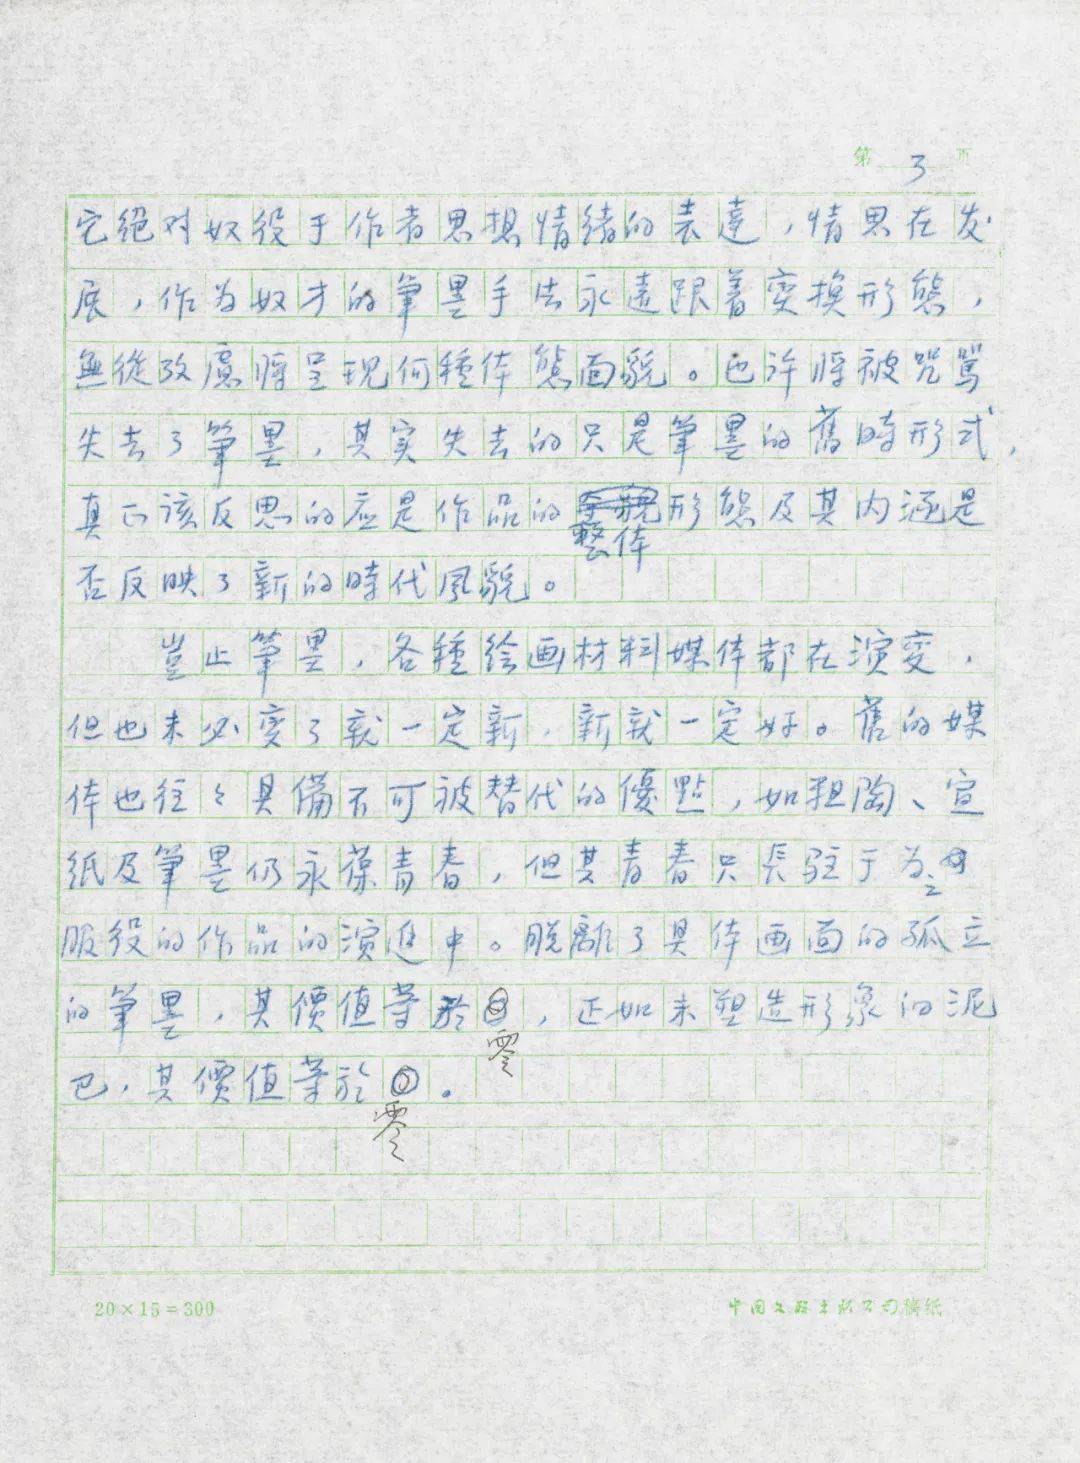 第 3 页
它絕对奴役于作者思想情緒的表達，情思在发
展，作为奴才的筆墨手法永遠跟着变換形態，
無從攷慮將呈現何種体態面貌。也許將被咒駡
失去了筆墨，其实失去的只是筆墨的舊時形式，
真正该反思的应是作品的整体形態及其内涵是
否反映了新的時代風貌。
豈止筆墨，各種绘画材料媒体都在演变，
但也未必变了就一定新，新就一定好。舊的媒
体也往々具備不可被替代的優點，如粗陶、宣
纸及筆墨仍永葆青春，但其青春只長駐于为之
服役的作品的演進中。脫離了具体画面的孤立
的筆墨，其價值等於零，正如未塑造形象的泥
巴，其價值等於零。
20×15=300
中国文联出版公司稿纸